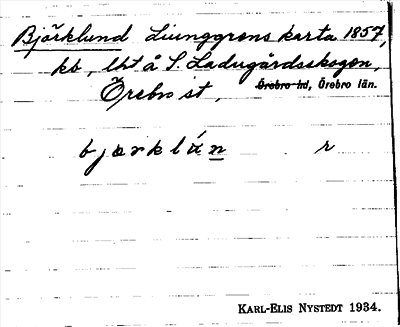 Björklund Ljunggrens karta 1857,
kb, lht å S. Ladugårdsskogen,
Örebro st, Örebro hd, Örebro län.
bjærklún r
KARL-ELIS NYSTEDT 1934.